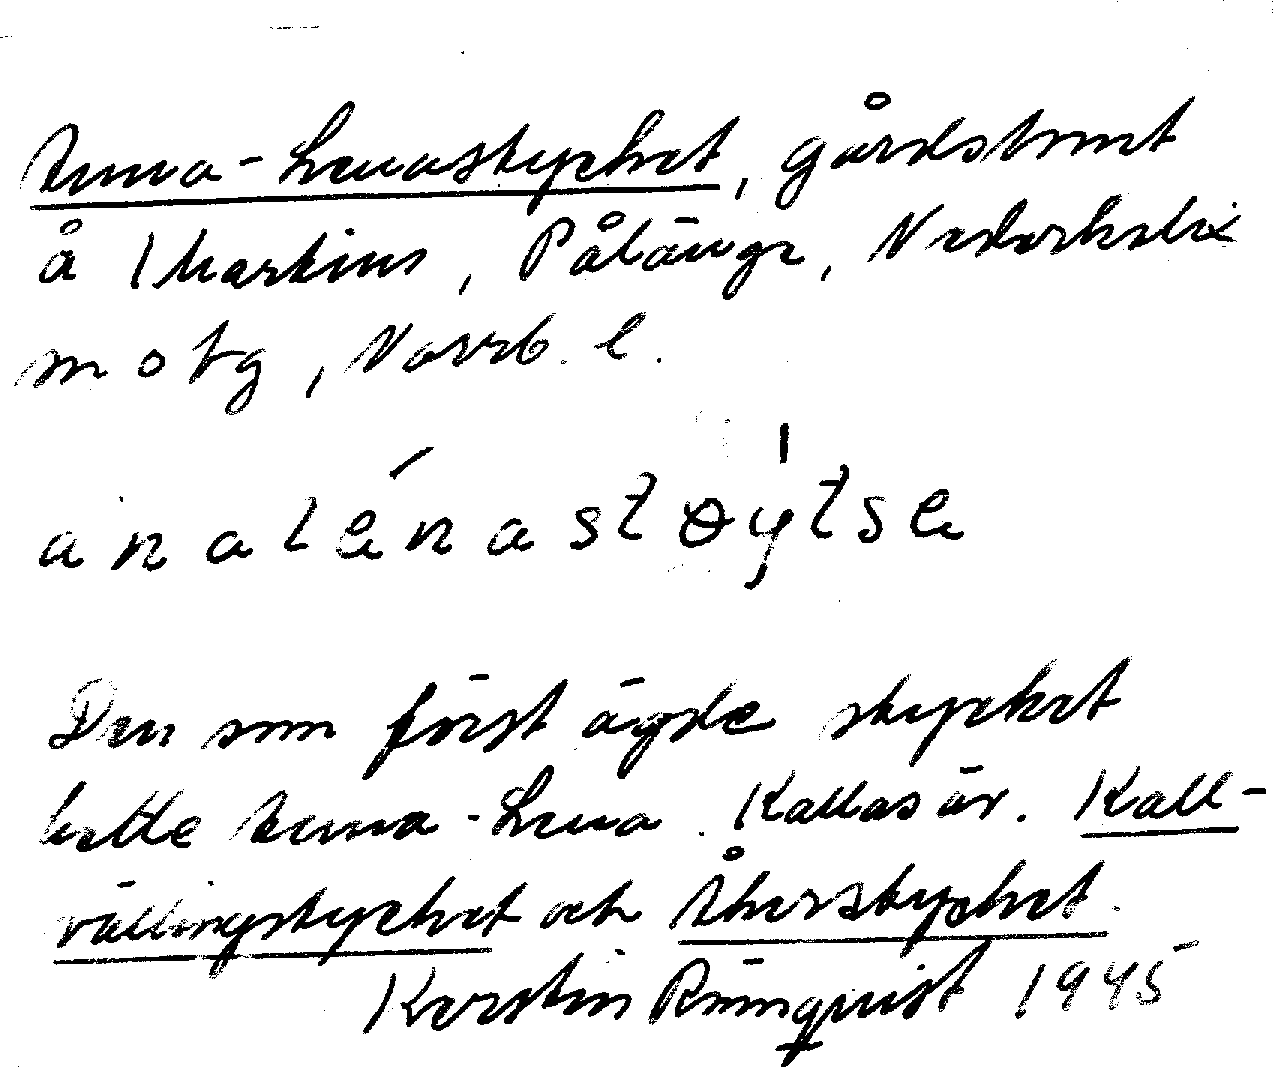 Anna-Lenastycket, gårdstomt
å Martins, Pålänge, Nederkalix
motg, Norrb. l.
analénastǿytse
Den som först ägde stycket
hette Anna-Lena. Kallas är. Kall-
vällingstycket och Åkerstycket.
Kerstin Rönnquist 1945